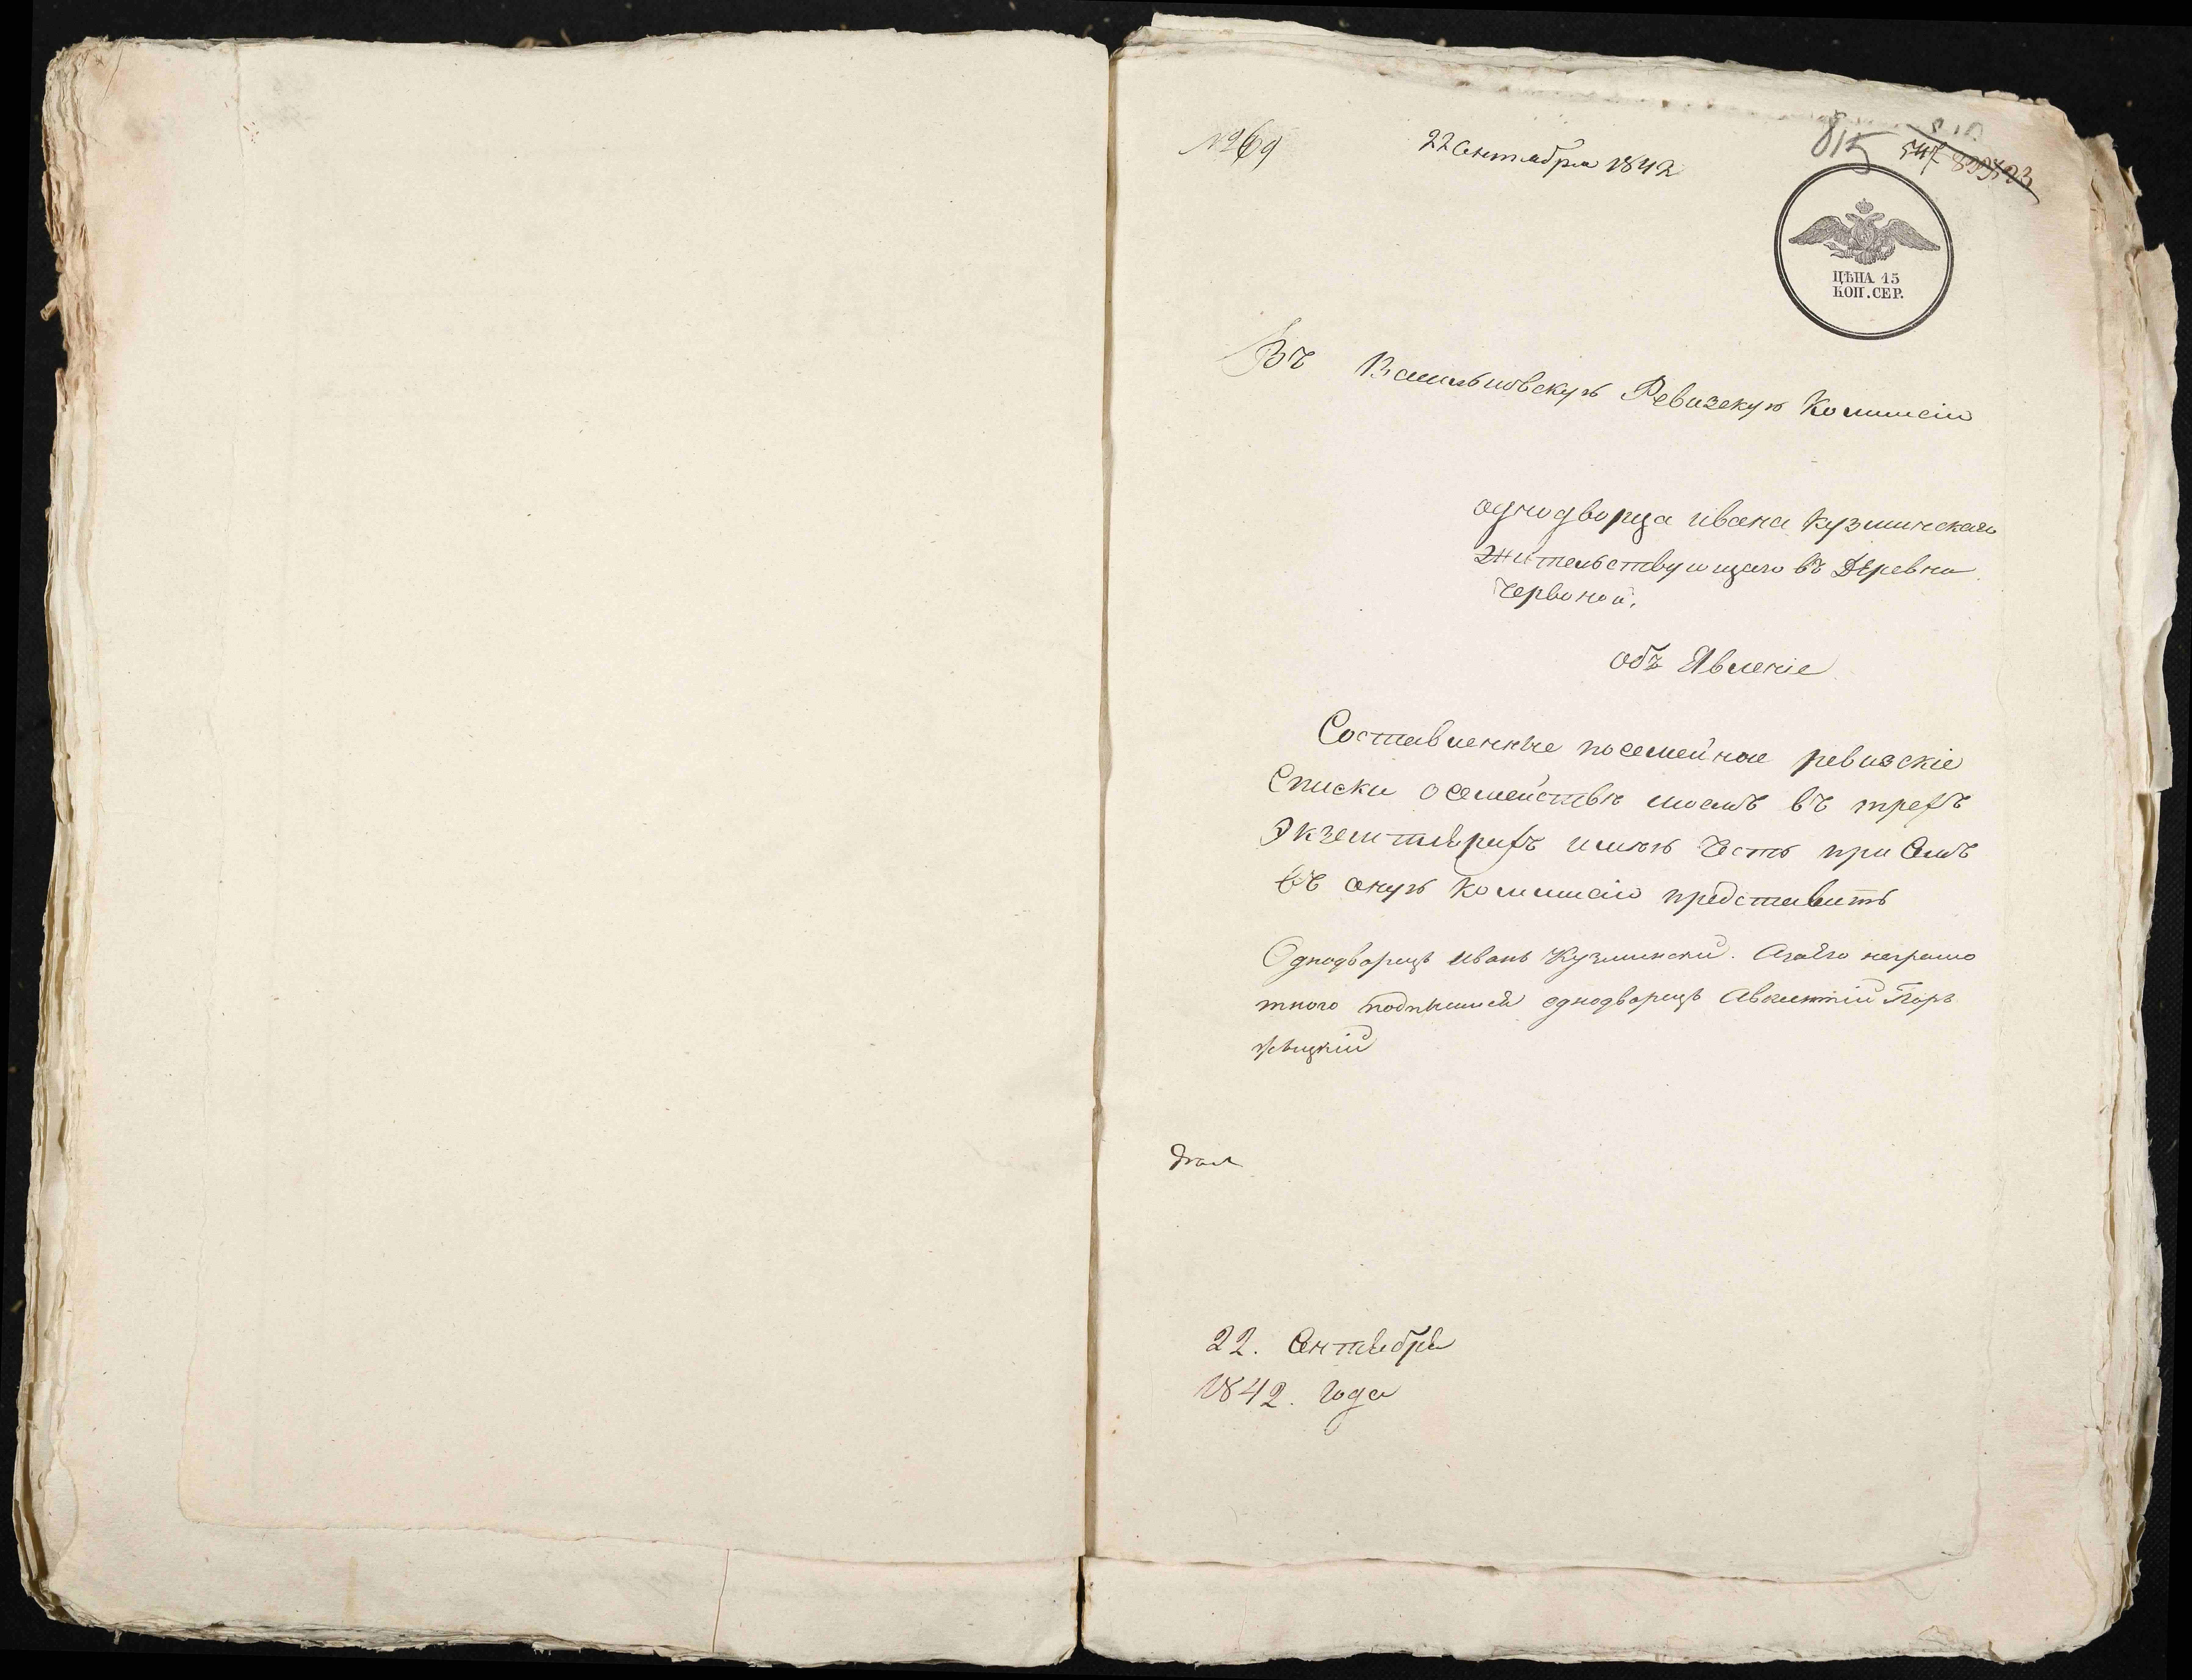 № 69
22 Сентября 1842
815
547
ЦѢНА 15
КОП. СЕР.
Въ Васильковскую Ревизскую Коммисію
однодворца ивана Кузминскаго
Жительствующаго въ Деревни
Червоной.
объ Явленіе
Составленные посемейные ревизскіе
Списки осемействѣ моемъ въ трехъ
Экземплярахъ имѣю Честь при Семъ
въ оную Коммисію представить
Однодворецъ Иванъ Кузминский. Азаего неграмо
тного подписался однодворецъ
22. Сентября
1842. Года